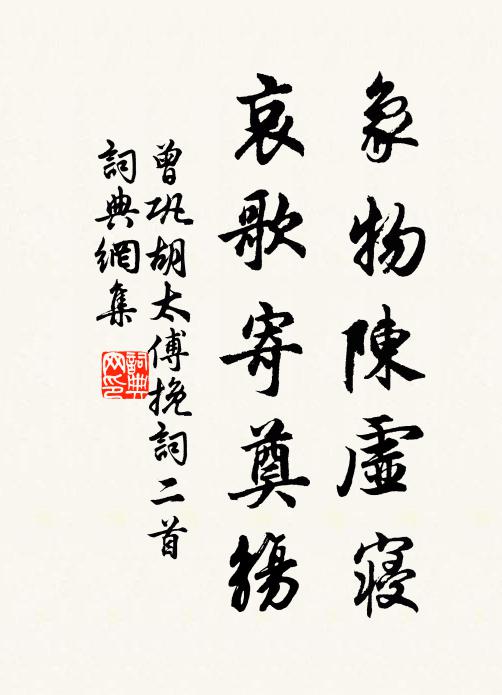 象物陳虛寢
哀歌寄奠觴
曾巩胡太傅挽詞二首
詞典網集
詞典网印